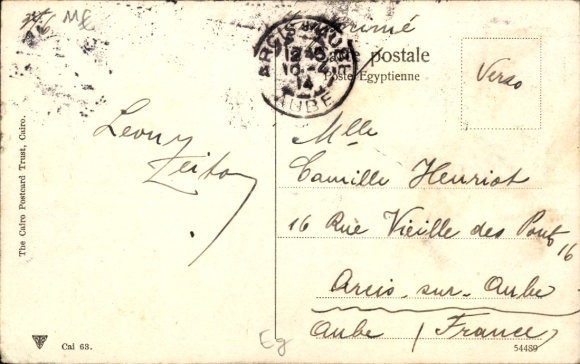 Imprimé
Carte postale
Poste Egyptienne
ARCIS-S-AUBE
12-15
10-4
14
AUBE
Verso
Leony
Zeitoy
The Cairo Postcard Trust, Cairo.
Mlle
Camille Henriot
16 Rue Vieille des Ponts
16
Arcis-sur-Aube
Aube (France)
Cai 63.
Eg
54489